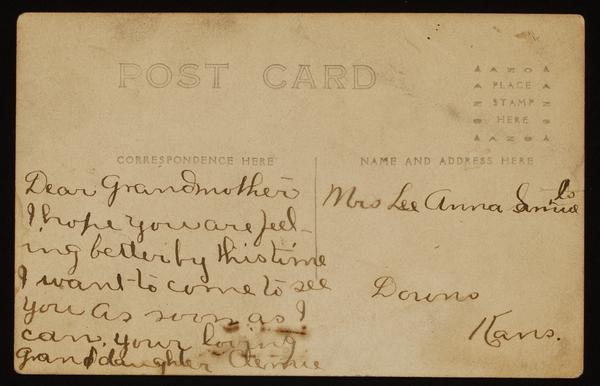 POST CARD
AZO
PLACE
STAMP
HERE
AZO
CORRESPONDENCE HERE
NAME AND ADDRESS HERE
Dear Grandmother
I hope you are feel-
ing better by this time
I want to come to see
you as soon as I
can, your loving
granddaughter
Mrs Lee Anna
Downs
Kans.